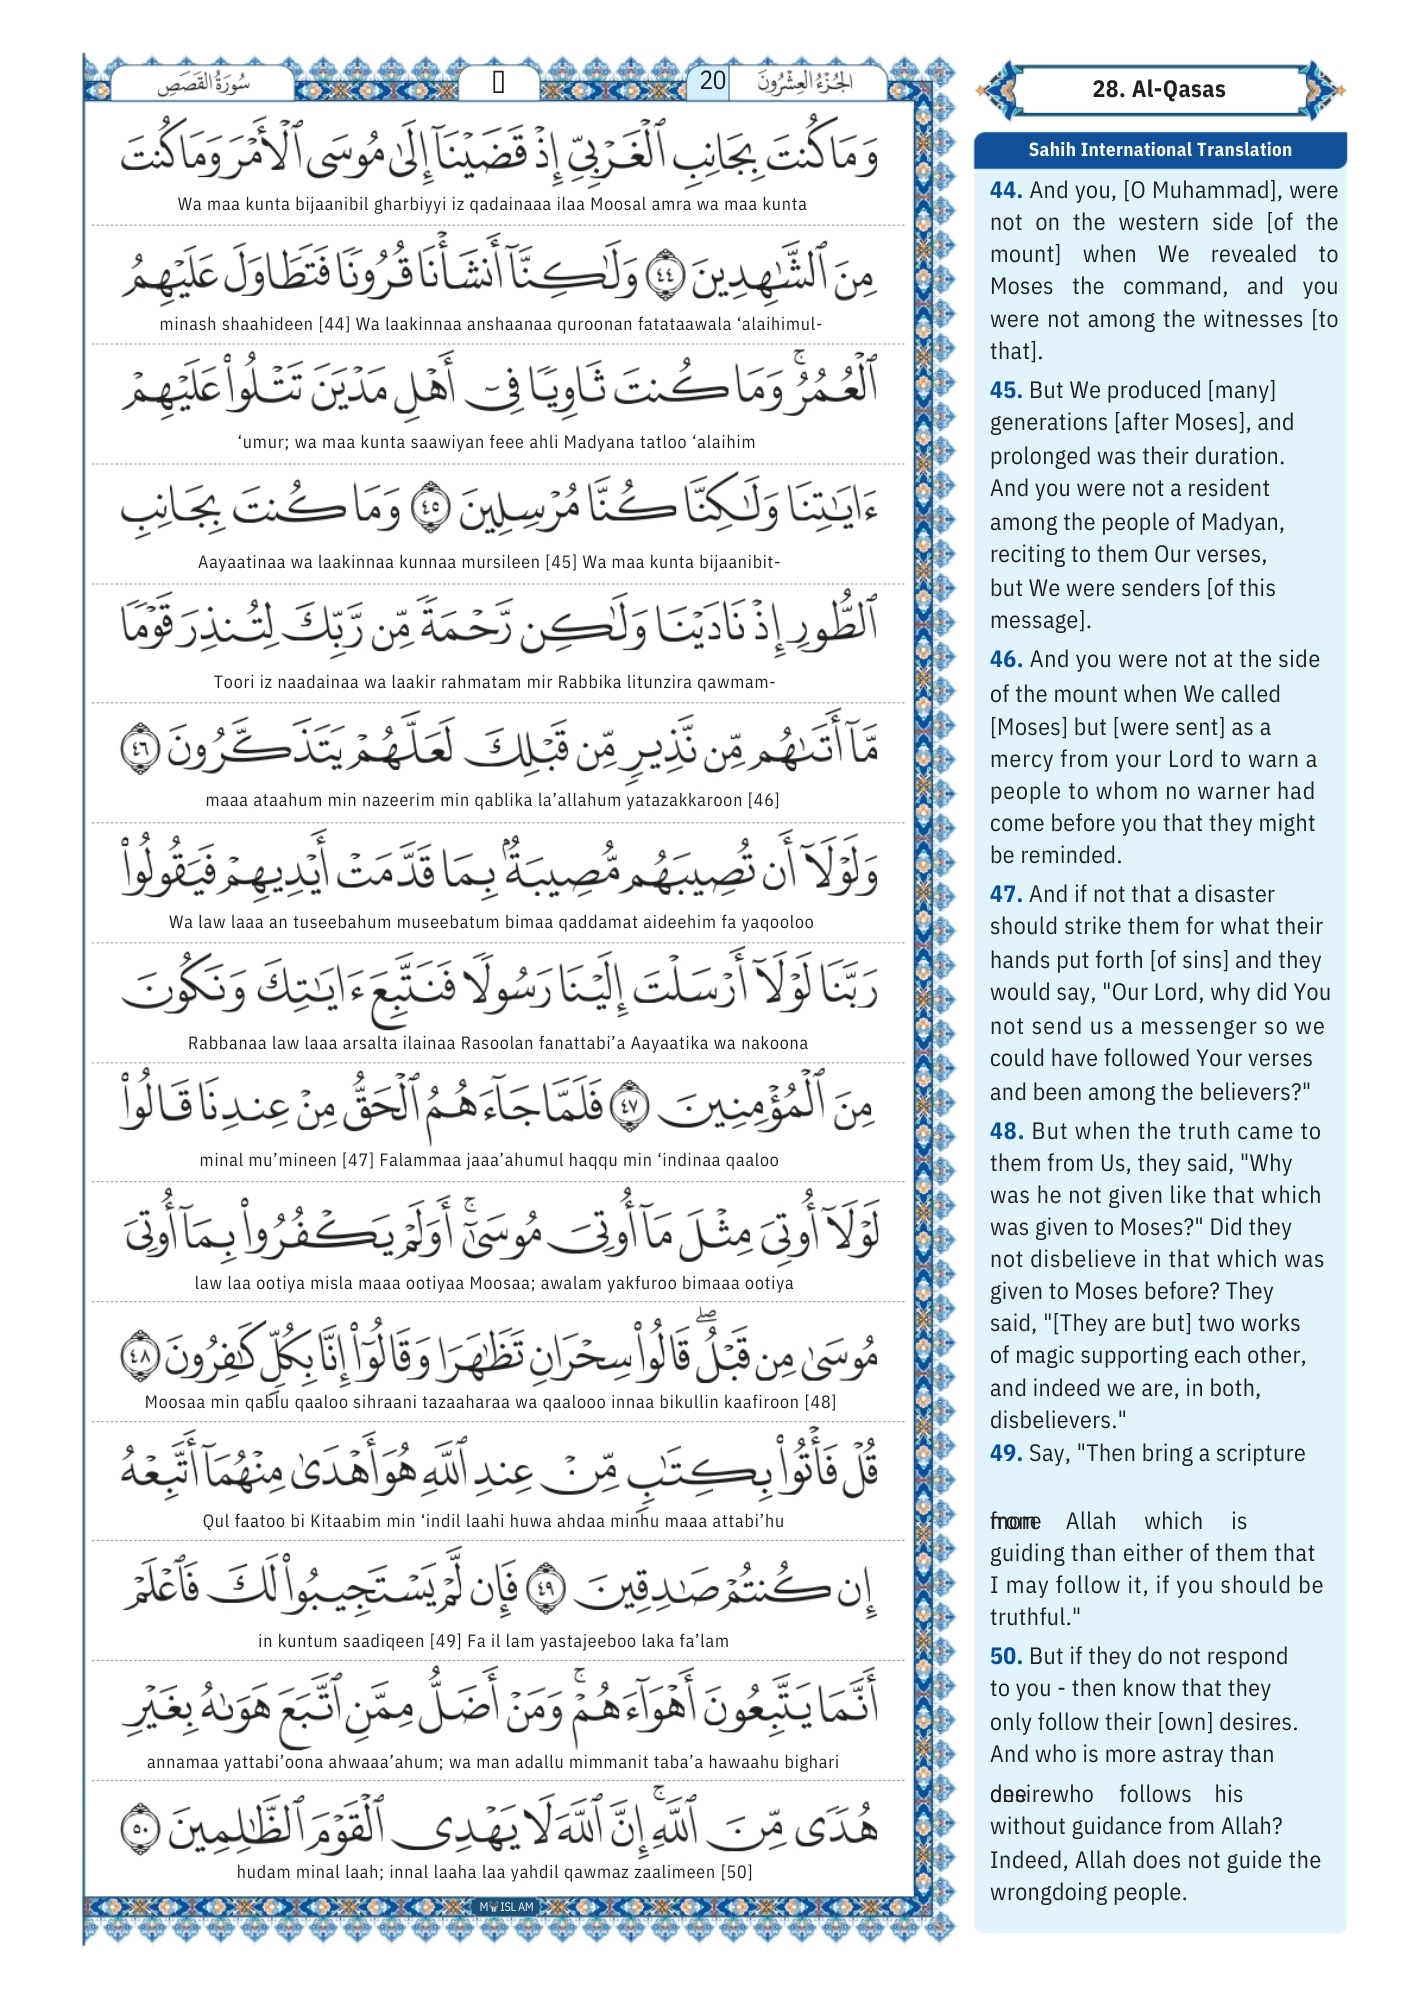 سُورَةُ القَصَصِ
20 الجُزْءُ العِشْرُونَ
وَمَا كُنتَ بِجَانِبِ ٱلْغَرْبِىِّ إِذْ قَضَيْنَآ إِلَىٰ مُوسَى ٱلْأَمْرَ وَمَا كُنتَ
Wa maa kunta bijaanibil gharbiyyi iz qadainaaa ilaa Moosal amra wa maa kunta
مِنَ ٱلشَّـٰهِدِينَ ٤٤ وَلَـٰكِنَّآ أَنشَأْنَا قُرُونًا فَتَطَاوَلَ عَلَيْهِمُ
minash shaahideen [44] Wa laakinnaa anshaanaa quroonan fatataawala ‘alaihimul-
ٱلْعُمُرُ ۚ وَمَا كُنتَ ثَاوِيًا فِىٓ أَهْلِ مَدْيَنَ تَتْلُوا۟ عَلَيْهِمْ
‘umur; wa maa kunta saawiyan feee ahli Madyana tatloo ‘alaihim
ءَايَـٰتِنَا وَلَـٰكِنَّا كُنَّا مُرْسِلِينَ ٤٥ وَمَا كُنتَ بِجَانِبِ
Aayaatinaa wa laakinnaa kunnaa mursileen [45] Wa maa kunta bijaanibit-
ٱلطُّورِ إِذْ نَادَيْنَا وَلَـٰكِن رَّحْمَةً مِّن رَّبِّكَ لِتُنذِرَ قَوْمًا
Toori iz naadainaa wa laakir rahmatam mir Rabbika litunzira qawmam-
مَّآ أَتَىٰهُم مِّن نَّذِيرٍ مِّن قَبْلِكَ لَعَلَّهُمْ يَتَذَكَّرُونَ ٤٦
maaa ataahum min nazeerim min qablika la’allahum yatazakkaroon [46]
وَلَوْلَآ أَن تُصِيبَهُم مُّصِيبَةٌۢ بِمَا قَدَّمَتْ أَيْدِيهِمْ فَيَقُولُوا۟
Wa law laaa an tuseebahum museebatum bimaa qaddamat aideehim fa yaqooloo
رَبَّنَا لَوْلَآ أَرْسَلْتَ إِلَيْنَا رَسُولًا فَنَتَّبِعَ ءَايَـٰتِكَ وَنَكُونَ
Rabbanaa law laaa arsalta ilainaa Rasoolan fanattabi’a Aayaatika wa nakoona
مِنَ ٱلْمُؤْمِنِينَ ٤٧ فَلَمَّا جَآءَهُمُ ٱلْحَقُّ مِنْ عِندِنَا قَالُوا۟
minal mu’mineen [47] Falammaa jaaa’ahumul haqqu min ‘indinaa qaaloo
لَوْلَآ أُوتِىَ مِثْلَ مَآ أُوتِىَ مُوسَىٰٓ ۚ أَوَلَمْ يَكْفُرُوا۟ بِمَآ أُوتِىَ
law laa ootiya misla maaa ootiyaa Moosaa; awalam yakfuroo bimaaa ootiya
مُوسَىٰ مِن قَبْلُ ۖ قَالُوا۟ سِحْرَانِ تَظَـٰهَرَا وَقَالُوٓا۟ إِنَّا بِكُلٍّ كَـٰفِرُونَ ٤٨
Moosaa min qablu qaaloo sihraani tazaaharaa wa qaalooo innaa bikullin kaafiroon [48]
قُلْ فَأْتُوا۟ بِكِتَـٰبٍ مِّنْ عِندِ ٱللَّهِ هُوَ أَهْدَىٰ مِنْهُمَآ أَتَّبِعْهُ
Qul faatoo bi Kitaabim min ‘indil laahi huwa ahdaa minhu maaa attabi’hu
إِن كُنتُمْ صَـٰدِقِينَ ٤٩ فَإِن لَّمْ يَسْتَجِيبُوا۟ لَكَ فَٱعْلَمْ
in kuntum saadiqeen [49] Fa il lam yastajeeboo laka fa’lam
أَنَّمَا يَتَّبِعُونَ أَهْوَآءَهُمْ ۚ وَمَنْ أَضَلُّ مِمَّنِ ٱتَّبَعَ هَوَىٰهُ بِغَيْرِ
annamaa yattabi’oona ahwaaa’ahum; wa man adallu mimmanit taba’a hawaahu bighari
هُدًى مِّنَ ٱللَّهِ ۚ إِنَّ ٱللَّهَ لَا يَهْدِى ٱلْقَوْمَ ٱلظَّـٰلِمِينَ ٥٠
hudam minal laah; innal laaha laa yahdil qawmaz zaalimeen [50]
28. Al-Qasas
Sahih International Translation
44. And you, [O Muhammad], were
not on the western side [of the
mount] when We revealed to
Moses the command, and you
were not among the witnesses [to
that].
45. But We produced [many]
generations [after Moses], and
prolonged was their duration.
And you were not a resident
among the people of Madyan,
reciting to them Our verses,
but We were senders [of this
message].
46. And you were not at the side
of the mount when We called
[Moses] but [were sent] as a
mercy from your Lord to warn a
people to whom no warner had
come before you that they might
be reminded.
47. And if not that a disaster
should strike them for what their
hands put forth [of sins] and they
would say, "Our Lord, why did You
not send us a messenger so we
could have followed Your verses
and been among the believers?"
48. But when the truth came to
them from Us, they said, "Why
was he not given like that which
was given to Moses?" Did they
not disbelieve in that which was
given to Moses before? They
said, "[They are but] two works
of magic supporting each other,
and indeed we are, in both,
disbelievers."
49. Say, "Then bring a scripture
Allah which is
guiding than either of them that
I may follow it, if you should be
truthful."
50. But if they do not respond
to you - then know that they
only follow their [own] desires.
And who is more astray than
who follows his
without guidance from Allah?
Indeed, Allah does not guide the
wrongdoing people.